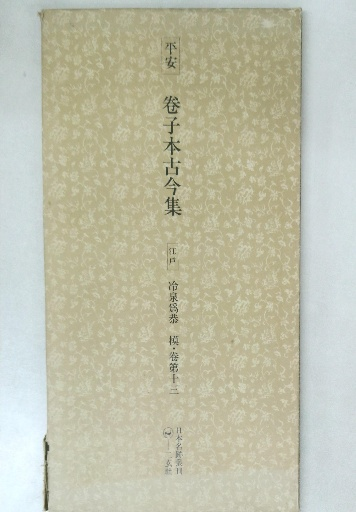 平安
巻子本古今集
江戸
冷泉為恭 模・巻第十三
日本名跡叢刊
二玄社